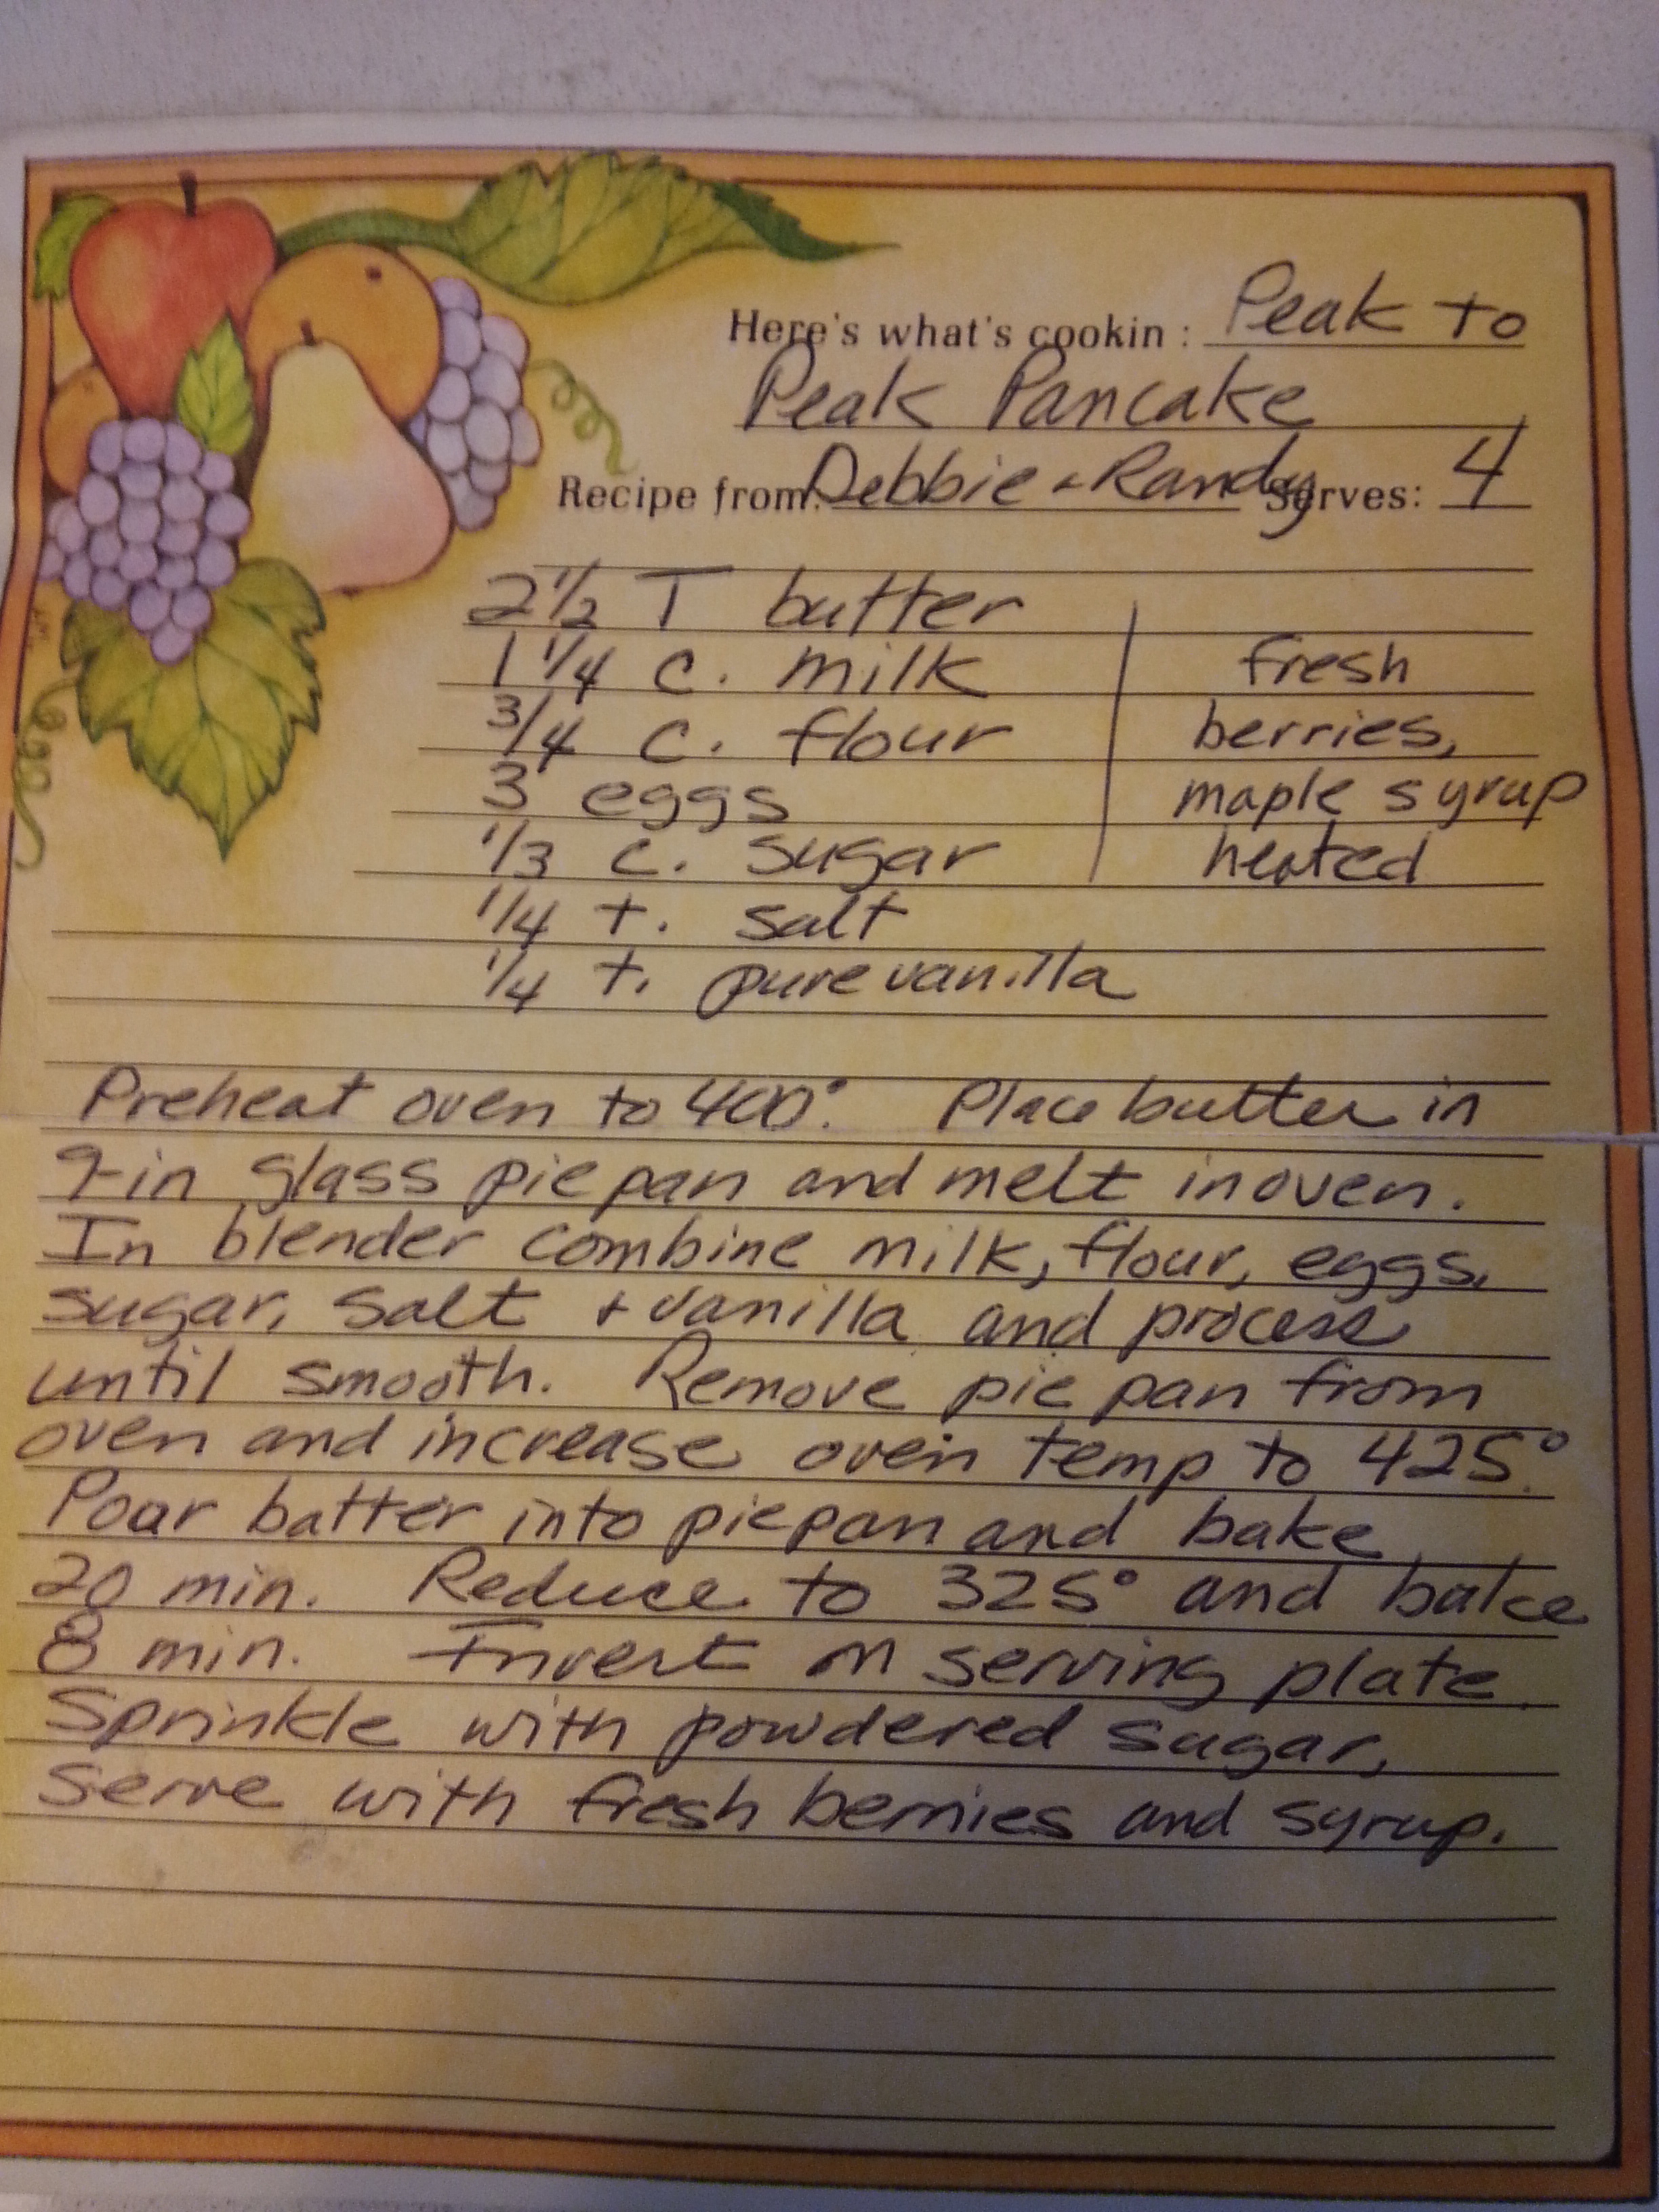 Here's what's cookin : Peak to
Peak Pancake
Recipe from: Debbie + Randy Serves: 4
2 1/2 T butter
1 1/4 c. milk
fresh
3/4 c. flour
berries,
3 eggs
maple syrup
1/3 c. sugar
heated
1/4 t. salt
1/4 t. pure vanilla
Preheat oven to 400°. Place butter in
9-in glass pie pan and melt in oven.
In blender combine milk, flour, eggs,
sugar, salt + vanilla and process
until smooth. Remove pie pan from
oven and increase oven temp to 425°.
Pour batter into pie pan and bake
20 min. Reduce to 325° and bake
8 min. Invert on serving plate.
Sprinkle with powdered sugar,
serve with fresh berries and syrup.